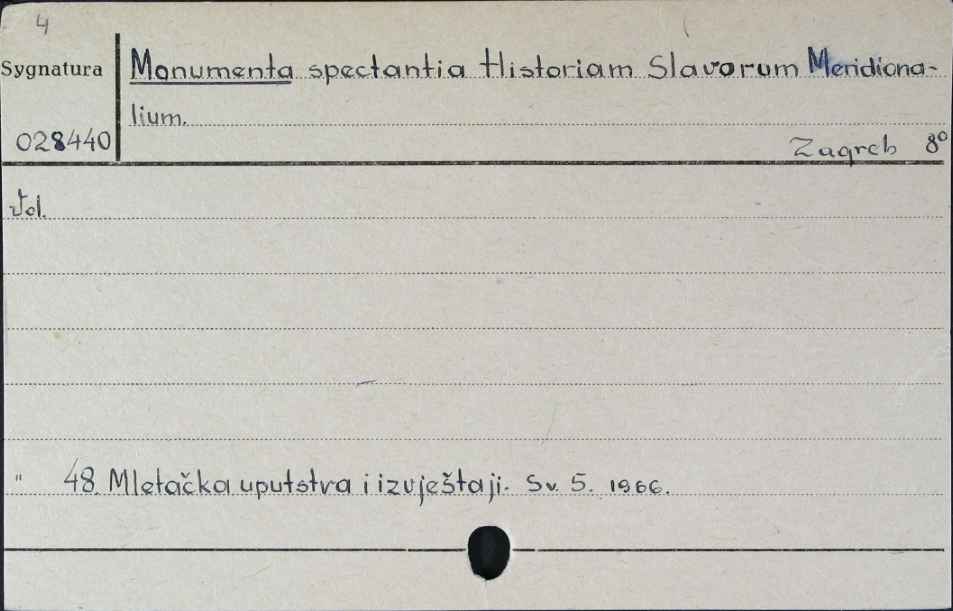 4
Sygnatura Monumenta spectantia Historiam Slavorum Meridiona-
lium.
028440 Zagreb 8°
Vol.
" 48. Mletačka uputstva i izvještaji. Sv. 5. 1966.